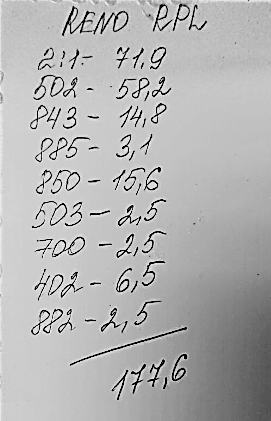 RENO RPL
2:1- 71,9
502 - 58,2
843 - 14,8
885 - 3,1
850 - 15,6
503 - 2,5
700 - 2,5
402 - 6,5
882 - 2,5
177,6